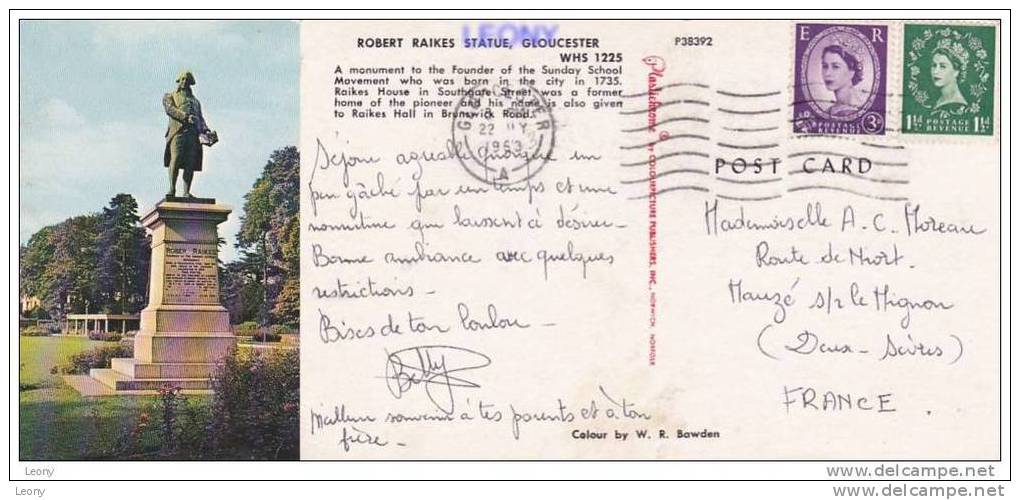 LEONY
ROBERT RAIKES STATUE, GLOUCESTER
WHS 1225
A monument to the Founder of the Sunday School
Movement who was born in the city in 1735.
Raikes House in Southgate Street was a former
home of the pioneer and his name is also given
to Raikes Hall in Brunswick Road.
P38392
E R
POSTAGE REVENUE 3D
1½D POSTAGE REVENUE 1½D
GLOUCESTER
22 MY
1963
A
POST CARD
Séjour agréable quoique un
peu gâché par un temps et une
nourriture qui laissent à désirer.
Bonne ambiance avec quelques
restrictions -
Bises de ton Loulou -
Betty
Meilleur souvenir à tes parents et à ton
frère -
Plastichrome ® BY COLOURPICTURE PUBLISHERS, INC., NORWICH, NORFOLK
Mademoiselle A. C. Moreau
Route de Niort
Mauzé s/r le Mignon
(Deux-Sèvres)
FRANCE.
Colour by W. R. Bawden
ROBERT RAIKES
Leony
delcampe.net
Leony
delcampe.net